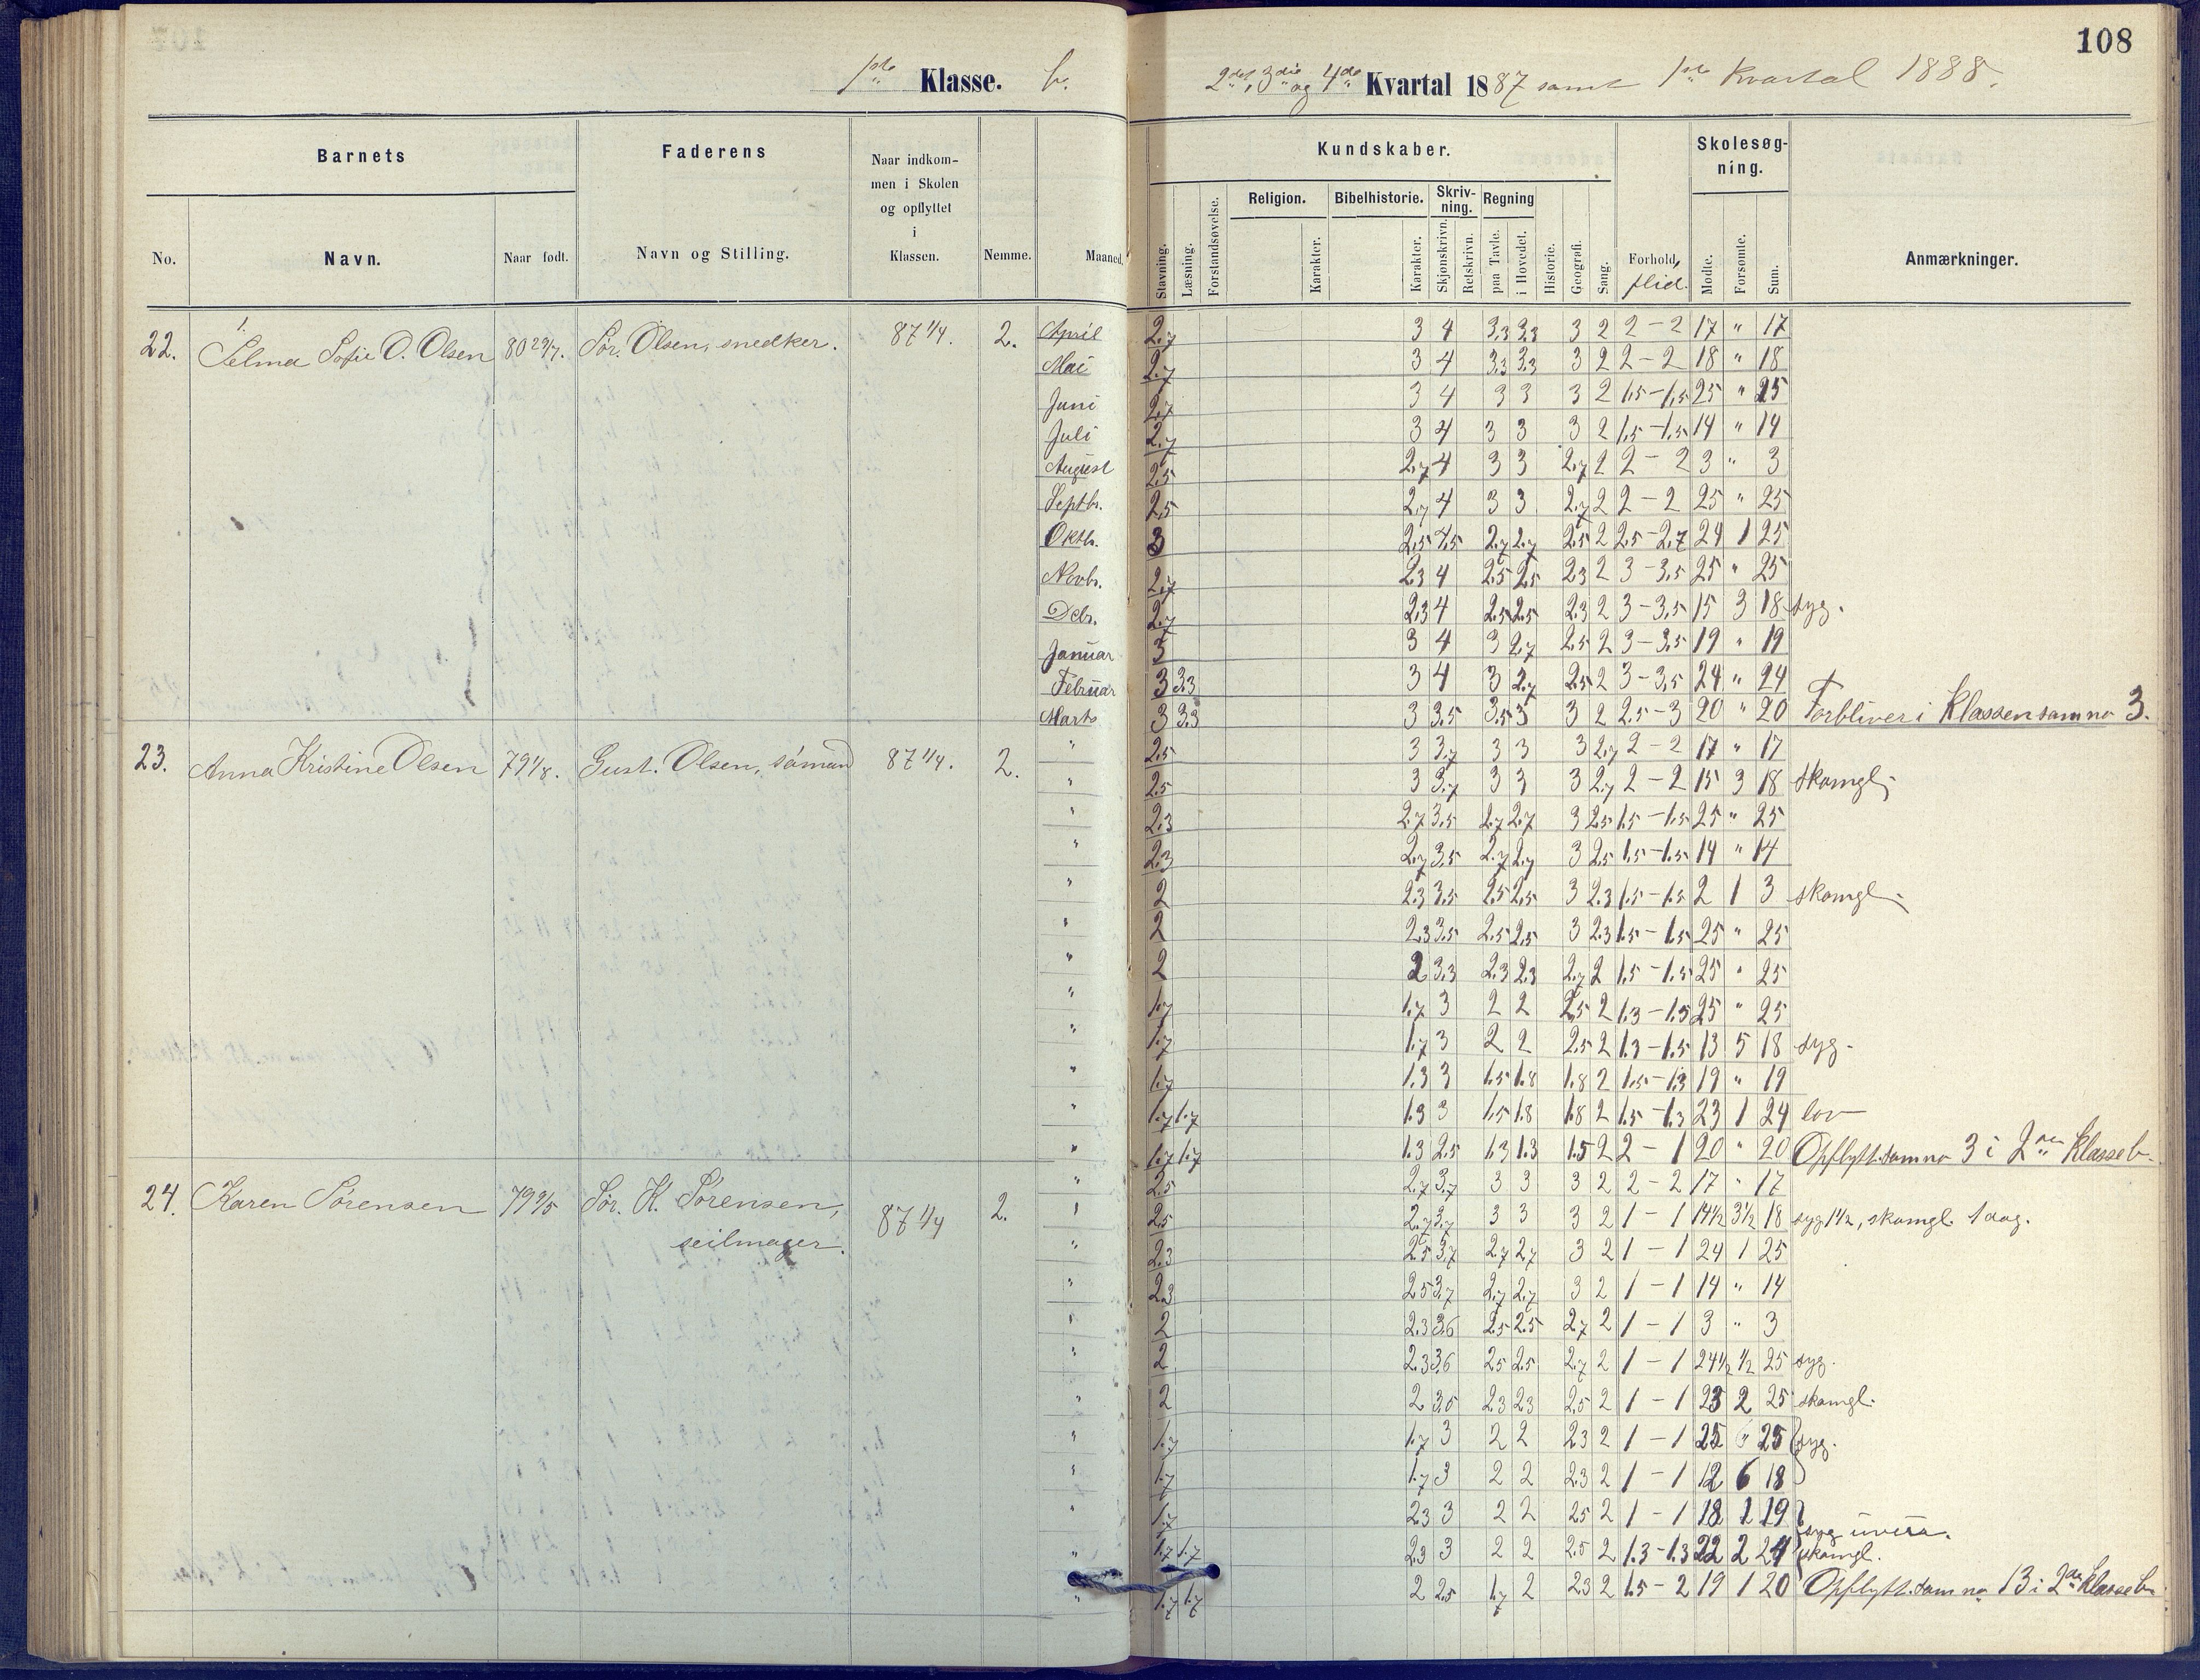 108
1ste Klasse. b.
2det, 3die og 4de Kvartal 1887 samt 1ste Kvartal 1888.
Barnets
Faderens
Naar indkom-
men i Skolen
og opflyttet
i
Klassen.
Nemme.
Maaned.
No.
Navn.
Naar født.
Navn og Stilling.
Kundskaber.
Skolesøg-
ning.
Religion.
Bibelhistorie.
Skriv-
ning.
Regning
Stavning.
Læsning.
Forstandsøvelse.
Karakter.
Karakter.
Skjønskrivn.
Retskrivn.
paa Tavle.
i Hovedet.
Historie.
Geografi.
Sang.
Forhold,
flid.
Modte.
Forsømte.
Sum.
Anmærkninger.
22. Selma Sofie O. Olsen 80 29/7. Sør. Olsen, snedker. 87 1/4. 2.
April 2.7 3 4 3.3 3.3 3 2 2-2 17 " 17
Mai 2.7 3 4 3.3 3.3 3 2 2-2 18 " 18
Juni 2.7 3 4 3 3 3 2 1.5-1.5 25 " 25
Juli 2.7 3 4 3 3 3 2 1.5-1.5 14 " 14
August 2.5 2.7 4 3 3 2.7 2 2-2 3 " 3
Septbr. 2.5 2.7 4 3 3 2.7 2 2-2 25 " 25
Oktb. 3 2.5 4.5 2.7 2.7 2.5 2 2.5-2.7 24 1 25
Novbr. 2.7 2.3 4 2.5 2.5 2.3 2 3-3.5 25 " 25
Debr. 2.7 2.3 4 2.5 2.5 2.3 2 3-3.5 15 3 18 syg.
Januar 3 3 4 3 2.7 2.5 2 3-3.5 19 " 19
Februar 3 3.3 3 4 3 2.7 2.5 2 3-3.5 24 " 24
Marts 3 3.3 3 3.5 3.5 3 3 2 2.5-3 20 " 20 Forbliver i Klassen som no 3.
23. Anna Kristine Olsen 79 1/8. Gust. Olsen, sømand 87 1/4. 2.
" 2.5 3 3.7 3 3 3 2.7 2-2 17 " 17
" 2.5 3 3.7 3 3 3 2.7 2-2 15 3 18 skomgl.
" 2.3 2.7 3.5 2.7 2.7 3 2.5 1.5-1.5 25 " 25
" 2.3 2.7 3.5 2.7 2.7 3 2.5 1.5-1.5 14 " 14
" 2 2.3 3.5 2.5 2.5 3 2.3 1.5-1.5 2 1 3 skomgl.
" 2 2.3 3.5 2.5 2.5 3 2.3 1.5-1.5 25 " 25
" 2 2 3.3 2.3 2.3 2.7 2 1.5-1.5 25 " 25
" 1.7 1.7 3 2 2 2.5 2 1.3-1.5 25 " 25
" 1.7 1.7 3 2 2 2.5 2 1.3-1.5 13 5 18 syg.
" 1.7 1.3 3 1.5 1.8 1.8 2 1.5-1.3 19 " 19
" 1.7 1.7 1.3 3 1.5 1.8 1.8 2 1.5-1.3 23 1 24 lov
" 1.7 1.7 1.3 2.5 1.3 1.3 1.5 2 2-1 20 " 20 Opflytt. som no 3 i 2den Klasse b.
24. Karen Sørensen 79 9/5 Sør. K. Sørensen, 87 1/4 2.
seilmager.
" 2.5 2.7 3.7 3 3 3 2 2-2 17 " 17
" 2.5 2.7 3.7 3 3 3 2 1-1 14½ 3½ 18 syg 1½, skomgl. 1 dag.
" 2.3 2.5 3.7 2.7 2.7 3 2 1-1 24 1 25
" 2.3 2.5 3.7 2.7 2.7 3 2 1-1 14 " 14
" 2 2.3 3.6 2.5 2.5 2.7 2 1-1 3 " 3
" 2 2.3 3.6 2.5 2.5 2.7 2 1-1 24½ ½ 25 syg.
" 2 2 3.0 2.3 2.3 2.5 2 1-1 23 2 25 skomgl.
" 1.7 1.7 3 2 2 2.3 2 1-1 25 " 25 syg.
" 1.7 1.7 3 2 2 2.3 2 1-1 12 6 18
" 1.7 2.3 3 2 2 2.5 2 1-1 18 1 19 syg
" 1.7 1.7 2.3 3 2 2 2.5 2 1.3-1.3 22 2 24 skomgl.
" 1.7 1.7 2 2.5 1.7 2 2.3 2 1.5-2 19 1 20 Opflytt. som no 13 i 2den Klasse b.